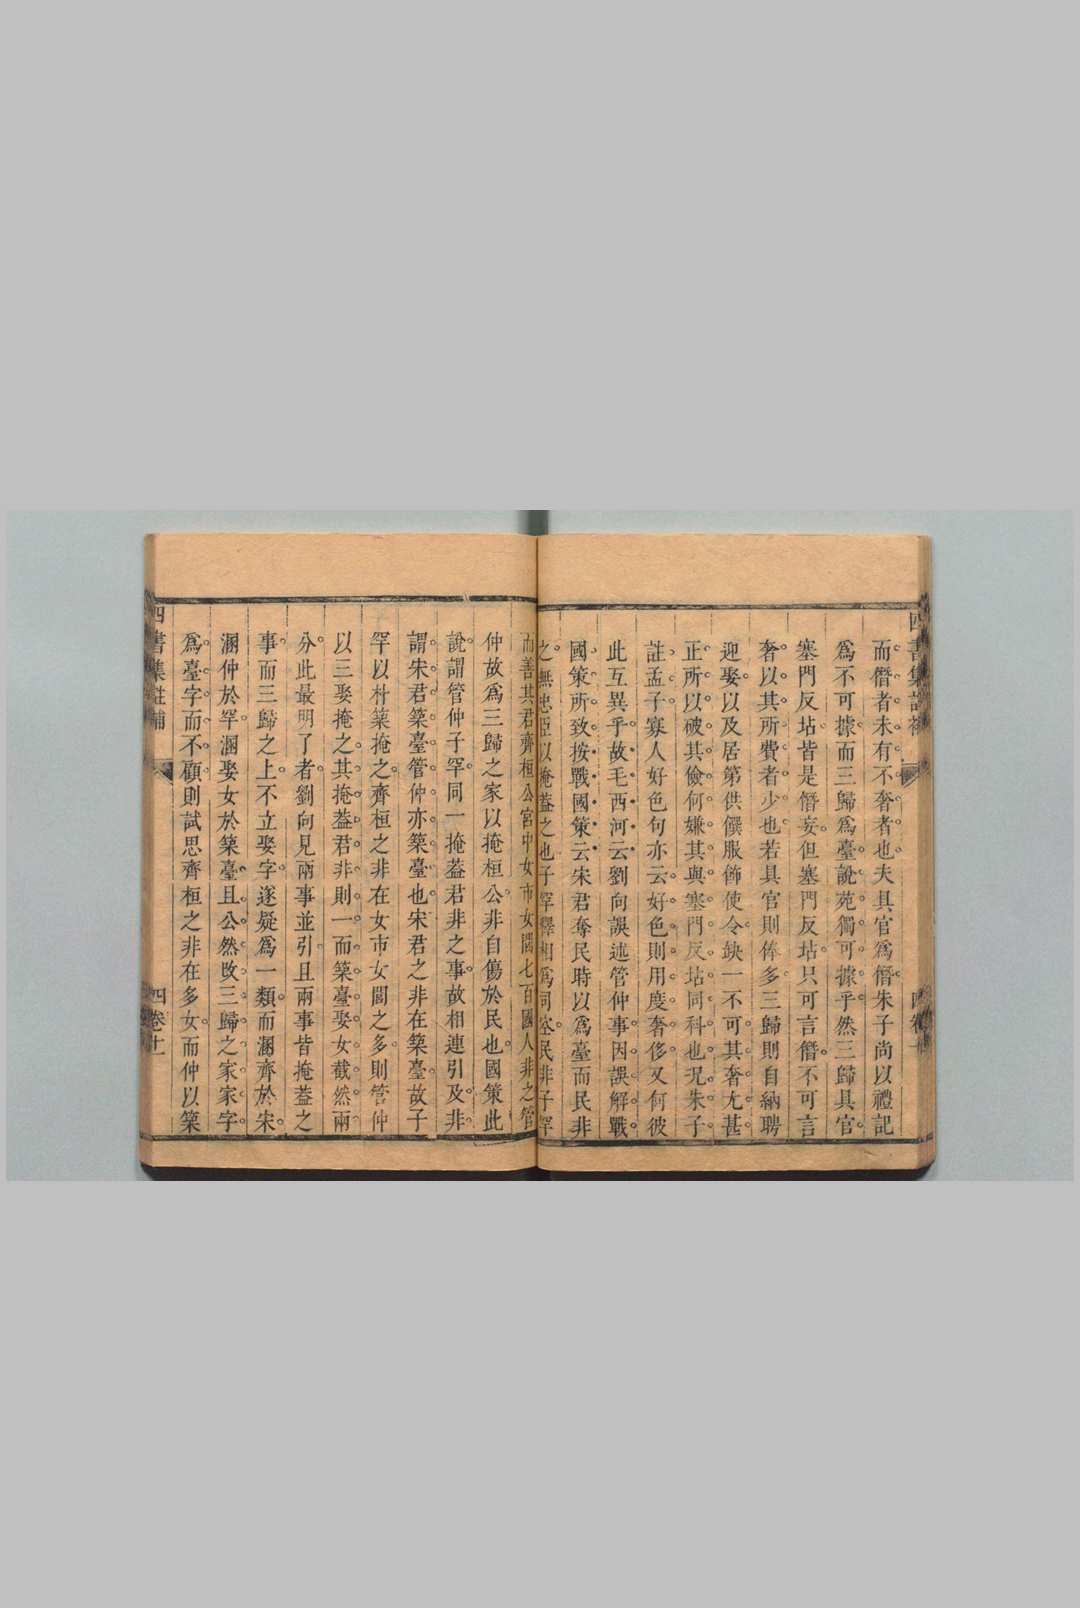 四書集註補
四卷
而僭者未有不奢者也夫具官爲僭朱子尚以禮記
爲不可據而三歸爲臺說苑獨可據乎然三歸具官
塞門反坫皆是僭妄但塞門反坫只可言僭不可言
奢以其所費者少也若具官則俸多三歸則自納聘
迎娶以及居第供饌服飾使令缺一不可其奢尤甚
正所以破其儉何嫌其與塞門反坫同科也況朱子
註孟子寡人好色句亦云好色則用度奢侈又何彼
此互異乎故毛西河云劉向誤述管仲事因誤解戰
國策所致按戰國策云宋君奪民時以爲臺而民非
之無忠臣以掩蓋之也子罕釋相爲司空民非子罕
而善其君齊桓公宮中女市女閭七百國人非之管
仲故爲三歸之家以掩桓公非自傷於民也國策此
說謂管仲子罕同一掩蓋君非之事故相連引及非
謂宋君築臺管仲亦築臺也宋君之非在築臺故子
罕以朴築掩之齊桓之非在女市女閭之多則管仲
以三娶掩之其掩蓋君非則一而築臺娶女截然兩
分此最明了者劉向見兩事並引且兩事皆掩蓋之
事而三歸之上不立娶字遂疑爲一類而溷齊於宋
溷仲於罕溷娶女於築臺且公然改三歸之家家字
爲臺字而不顧則試思齊桓之非在多女而仲以築
四書集註補
四卷十一